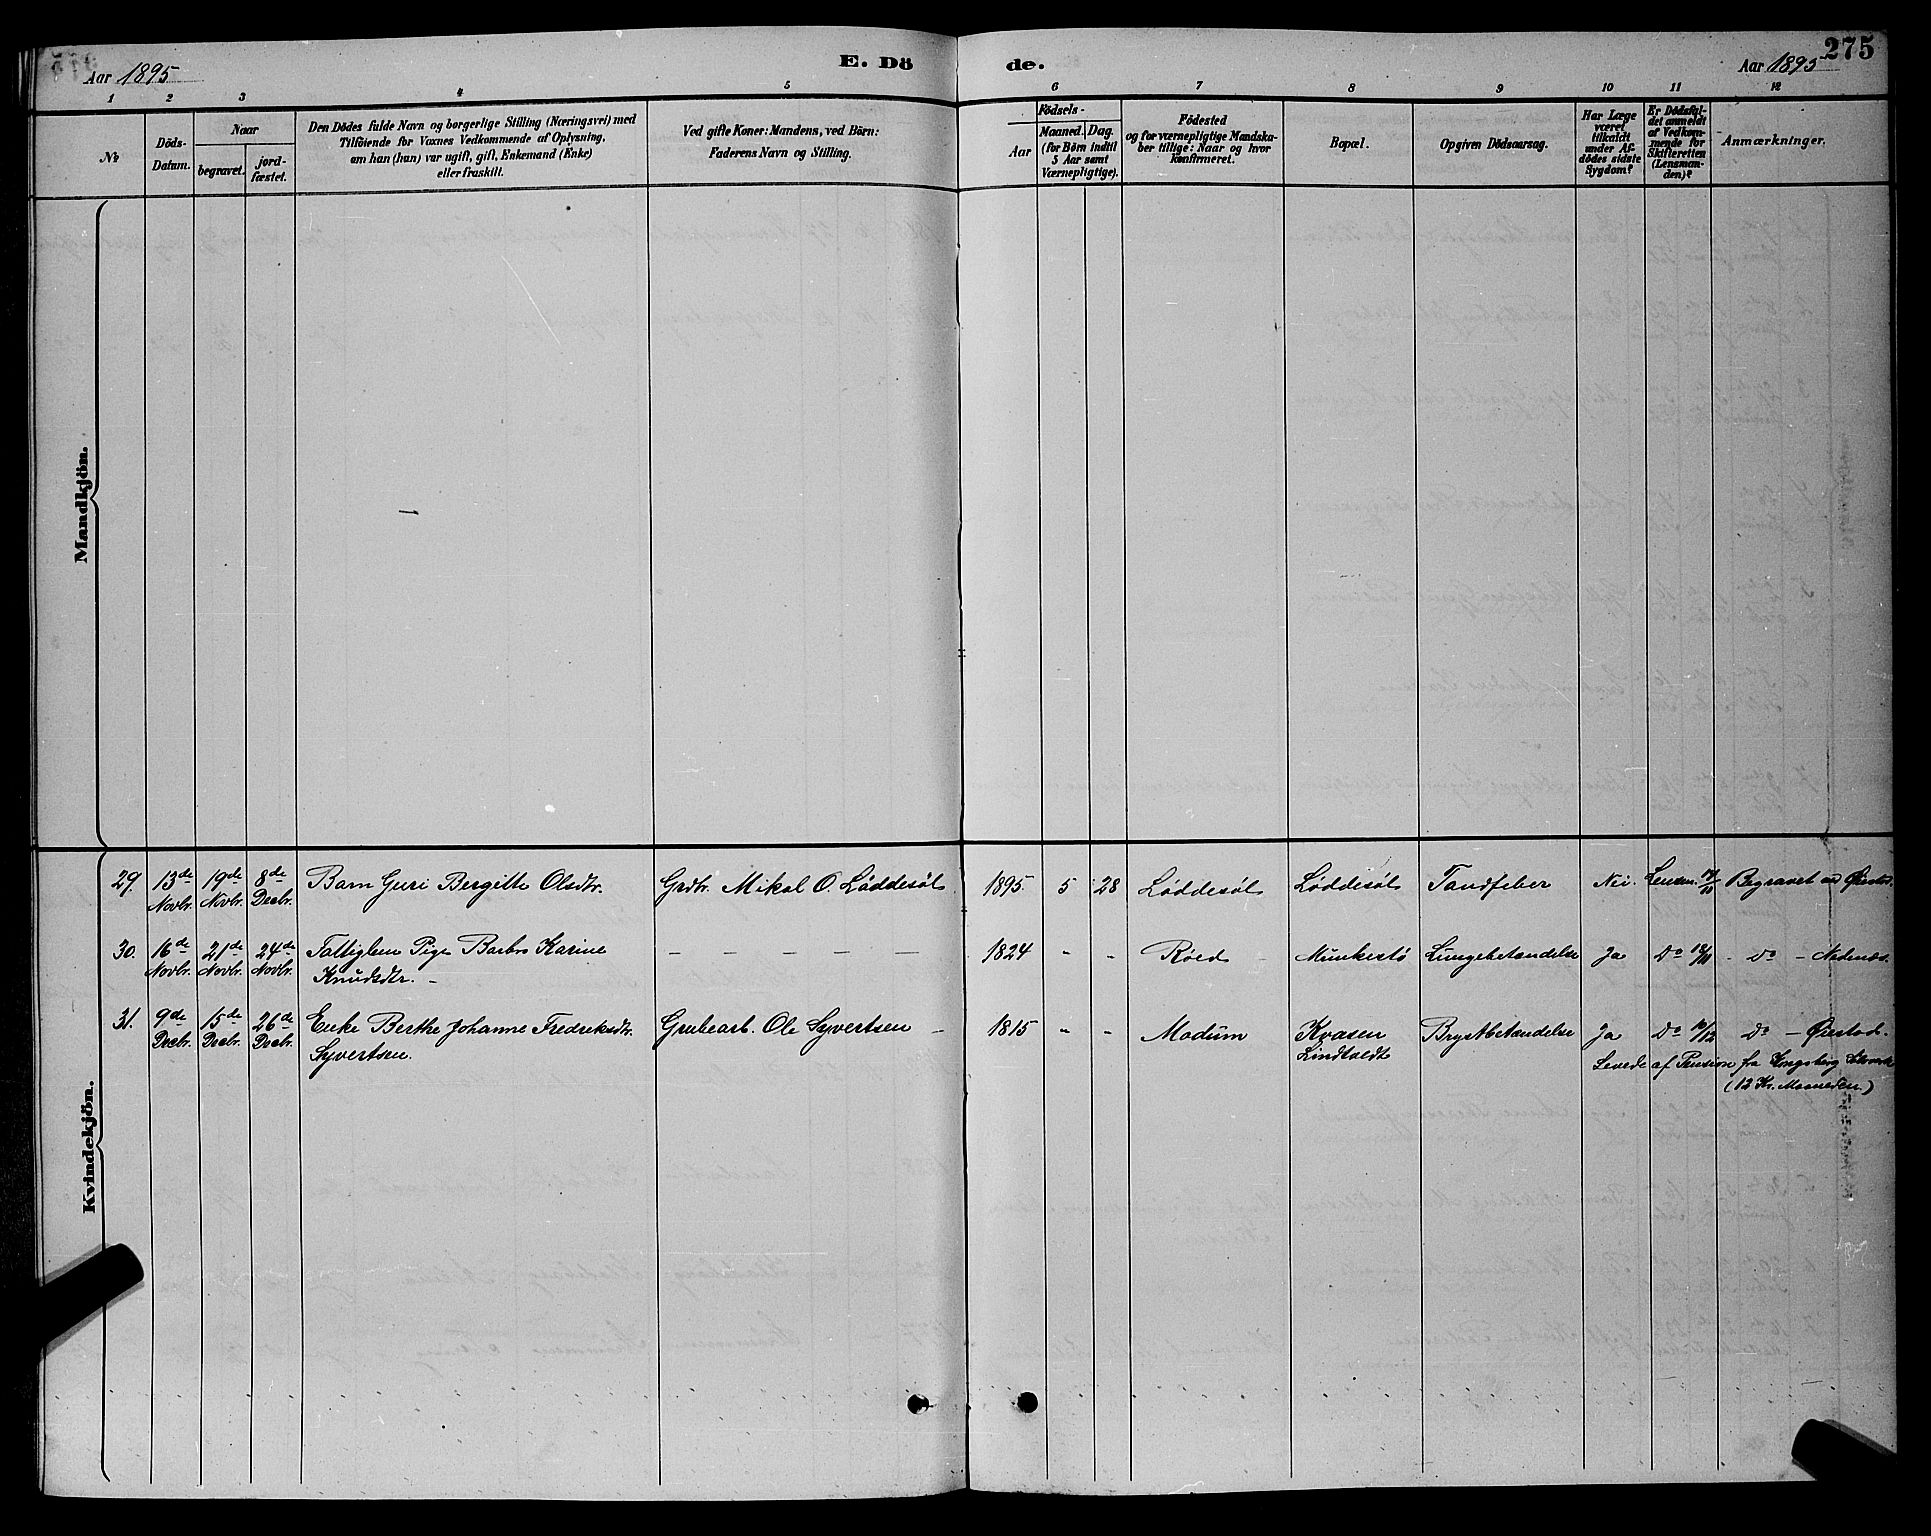 Aar 1895
E. Dö
de.
Aar 1895
275
1 2 3 4 5 6 7 8 9 10 11 12
No
Döds-
Datum.
Naar
begravet.
jord-
fæstet.
Den Dödes fulde Navn og borgerlige Stilling (Næringsvei) med
Tilföiende for Voxnes Vedkommende af Oplysning,
om han (hun) var ugift, gift, Enkemand (Enke)
eller fraskilt.
Ved gifte Koner: Mandens, ved Börn:
Faderens Navn og Stilling.
Födsels-
Aar
Maaned. Dag.
(for Börn indtil
5 Aar samt
Værnepligtige).
Födested
og for værnepligtige Mandska-
ber tillige: Naar og hvor
konfirmeret.
Bopæl.
Opgiven Dödsaarsag.
Har Læge
været
tilkaldt
under Af-
dödes sidste
Sygdom?
Er Dödsfal-
det anmeldt
af Vedkom-
mende for
Skifteretten
(Lensman-
den)?
Anmærkninger.
Mandkjön.
Kvindekjön.
29. 13de Novbr. 19de Novbr. 8de Decbr. Barn Guri Bergitte Olsdtr. Grdbr. Mikal O. Løddesøl 1895 5 28 Løddesøl Løddesøl Tandfeber Nei. Lensm. Begravet Øiestad.
30. 16de Novbr. 21de Novbr. 24de Novbr. Fattiglem Pige Barbro Karine — — — — — 1824 - - Røed Munkestø Lungebetændelse Ja Do 18/11 - Do - Nedenæs.
Knudsdtr. -
31. 9de Decbr. 15de Decbr. 26de Decbr. Enke Berthe Johanne Fredriksdtr. Grubearb. Ole Syvertsen - 1815 - - Modum Kvasen Brystbetændelse Ja Do 10/12 Do - Øiestad.
Syvertsen. Lindtvedt Levede af Pension fra Kongsberg
(12 Kr. Maaneden.)